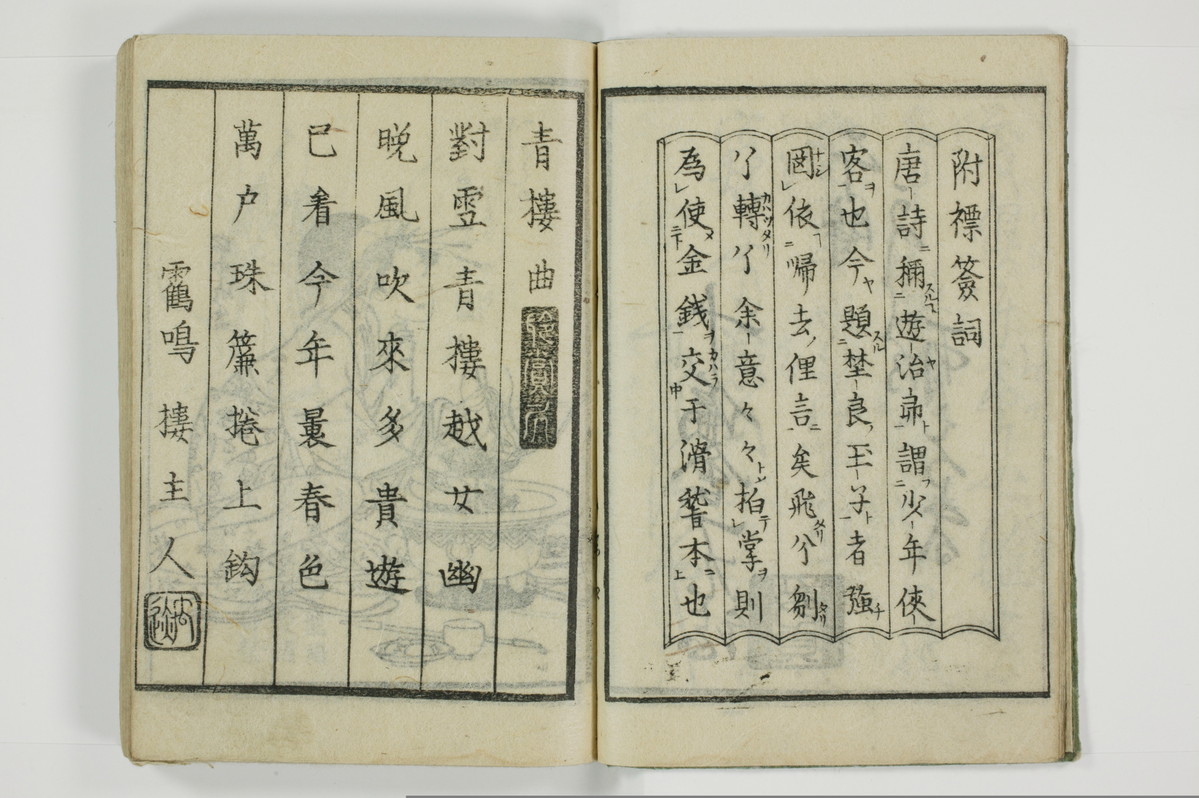 附標簽詞
唐詩稱遊冶郎謂少年俠
客也今題埜良王子者強
罔依歸去俚言矣飛兮
兮轉兮余意々々拍掌則
為使金銭交于滑稽本也
青樓曲
對雪青樓越女幽
晩風吹來多貴遊
已看今年曩春色
萬户珠簾捲上鈎
鸖鳴樓主人